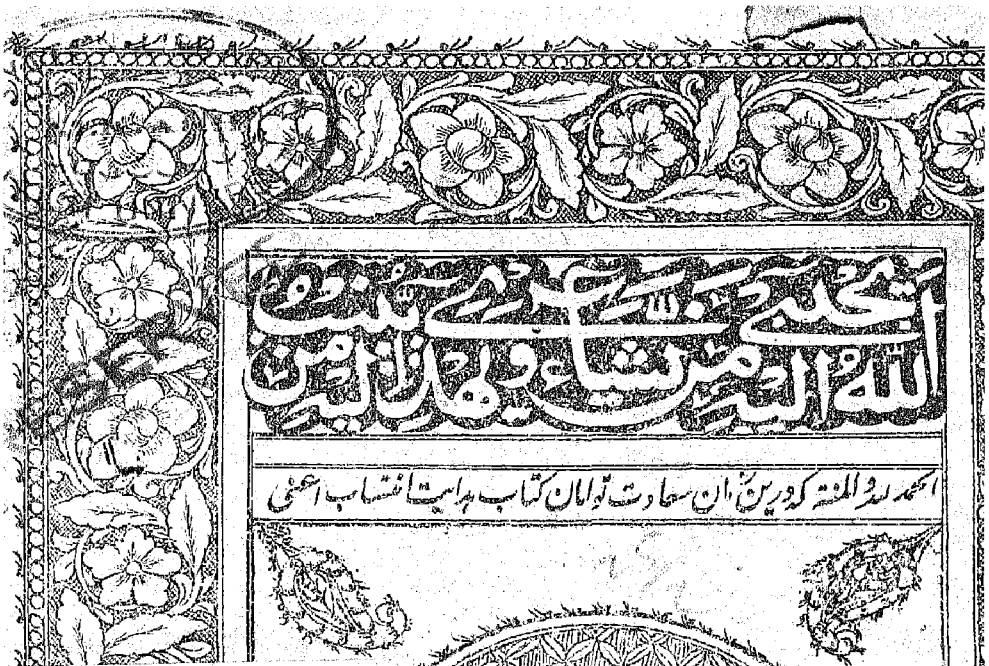 الله یجتبی الیه من یشاء و یهدی الیه من ینیب
الحمد لله و المنه که درین زمان سعادت توامان کتاب هدایت انتساب اعنی